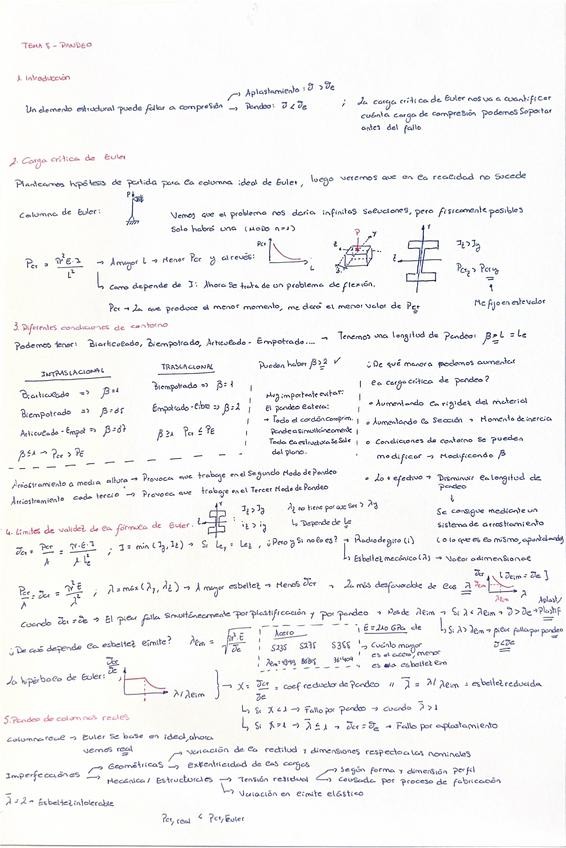 TEMA 5 - PANDEO
1. Introducción
Un elemento estructural puede fallar a compresión → Aplastamiento: σ > σe
→ Pandeo: σ < σe
; La carga crítica de Euler nos va a cuantificar
cuánta carga de compresión podemos soportar
antes del fallo
2. Carga crítica de Euler
Planteamos hipótesis de partida para la columna ideal de Euler, luego veremos que en la realidad no sucede
Columna de Euler:
P
Vemos que el problema nos daria infinitas soluciones, pero físicamente posibles
solo habrá una (MODO n=1)
Pcr = π²·E·I / L² → A mayor L → Menor Pcr y al revés:
Pcr
L
P
y
z
Iz > Iy
Pcrz > Pcry
↳ como depende de I: Ahora se trata de un problema de flexión.
Pcr → La que produce el menor momento, me dará el menor valor de Pcr
Me fijo en este valor
3. Diferentes condiciones de contorno
Podemos tener: Biarticulado, Biempotrado, Articulado - Empotrado.... → Tenemos una longitud de Pandeo: β·L = Le
INTRASLACIONAL
Biarticulado => β=1
Biempotrado => β=0'5
Articulado-Empot => β=0'7
β≤1 → Pcr > PE
TRASLACIONAL
Biempotrado => β=1
Empotrado-libre => β=2
β≥1 Pcr ≤ PE
Pueden haber β>2 ✓
Muy importante evitar:
El pandeo lateral:
→ Todo el cordón comprim.
pandea simultáneamente
Toda la estructura se sale
del plano.
¿De qué manera podemos aumentar
la carga crítica de pandeo?
• Aumentando la rigidez del material
• Aumentando la Sección → Momento de inercia
• Condiciones de contorno se pueden
modificar → Modificando β
• Lo + efectivo → Disminuir la longitud de
pandeo
↓
Se consigue mediante un
sistema de arrostramiento
(o lo que es lo mismo, apuntalando)
Arriostramiento a media altura → Provoca que trabaje en el Segundo Modo de Pandeo
Arriostramiento cada tercio → Provoca que trabaje en el Tercer Modo de Pandeo
4. Límites de validez de la fórmula de Euler:
Iz > Iy
iz > iy
λz no tiene por que ser > λy
↳ Depende de Le
σcr = Pcr / A = π²·E·I / A·Le² ; I = min (Iy, Iz) → Si Ley = Lez, ¿Pero y si no lo es? → Radio de giro (i)
↳ Esbeltez mecánica (λ) → Valor adimensional
Pcr / A = σcr = π²E / λ² ; λ = max (λy, λz) → A mayor esbeltez → Menos σcr → La más desfavorable de las λ
σcr
[σlim = σe]
λlim
λ
Cuando σcr = σe → El pilar falla simultáneamente por plastificación y por pandeo → Desde λlim → Si λ < λlim → σ > σe → Plastif
Aplast/
↳ Si λ > λlim → pilar falla por pandeo
σ < σe
¿De qué depende la esbeltez límite? λlim = √(π²E / σe)
Acero
S235 S275 S355
λlim:
E = 210 GPa de
→ Cuánto mayor
es el acero, menor
es la esbeltez lim
La hipérbola de Euler:
σcr / σe
λ / λlim
→ X = σcr / σe = coef reductor de Pandeo // λ̄ = λ / λlim = esbeltez reducida
↳ Si X < 1 → Fallo por pandeo → cuando λ̄ > 1
↳ Si X = 1 → λ̄ ≤ 1 → σcr = σe → Fallo por aplastamiento
5. Pandeo de columnas reales
Columna real → Euler se base en ideal, ahora
vemos real
Imperfecciones → Geométricas → Variación de la rectitud y dimensiones respecto a las nominales
→ Excentricidad en las cargas
→ Mecánica / Estructurales → Tensión residual → Según forma y dimensión perfil
→ Causada por proceso de fabricación
↳ Variación en límite elástico
λ̄ = 2 → Esbeltez intolerable
Pcr, real < Pcr, Euler